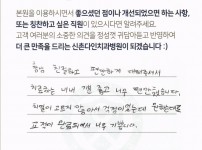 본원을 이용하시면서 좋으셨던 점이나 개선되었으면 하는 사항,
또는 칭찬하고 싶은 직원이 있으시다면 알려주세요.
고객 여러분의 소중한 의견을 정성껏 귀담아듣고 반영하여
더 큰 만족을 드리는 신촌다인치과병원이 되겠습니다 :)
항상 친절하고 편안하게 대해주셔서
치료받는 내내 겁 좀 없고 너무 편안했습니다.
치열이 고르지 않아서 걱정이었는데
교정이 완료되어서 너무 기쁩니다.